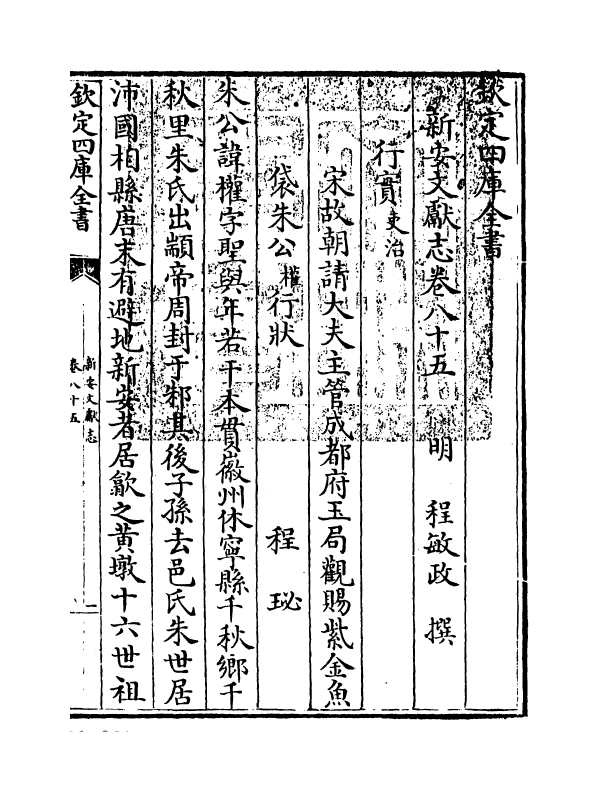 欽定四庫全書
新安文獻志卷八十五　明　程敏政　撰
行實吏治
宋故朝請大夫主管成都府玉局觀賜紫金魚
袋朱公權行狀　程珌
朱公諱權字聖與年若干本貫徽州休寧縣千秋鄉千
秋里朱氏出顓帝周封于邾其後子孫去邑氏朱世居
沛國相縣唐末有避地新安者居歙之黃墩十六世祖
欽定四庫全書
新安文獻志
卷八十五
一